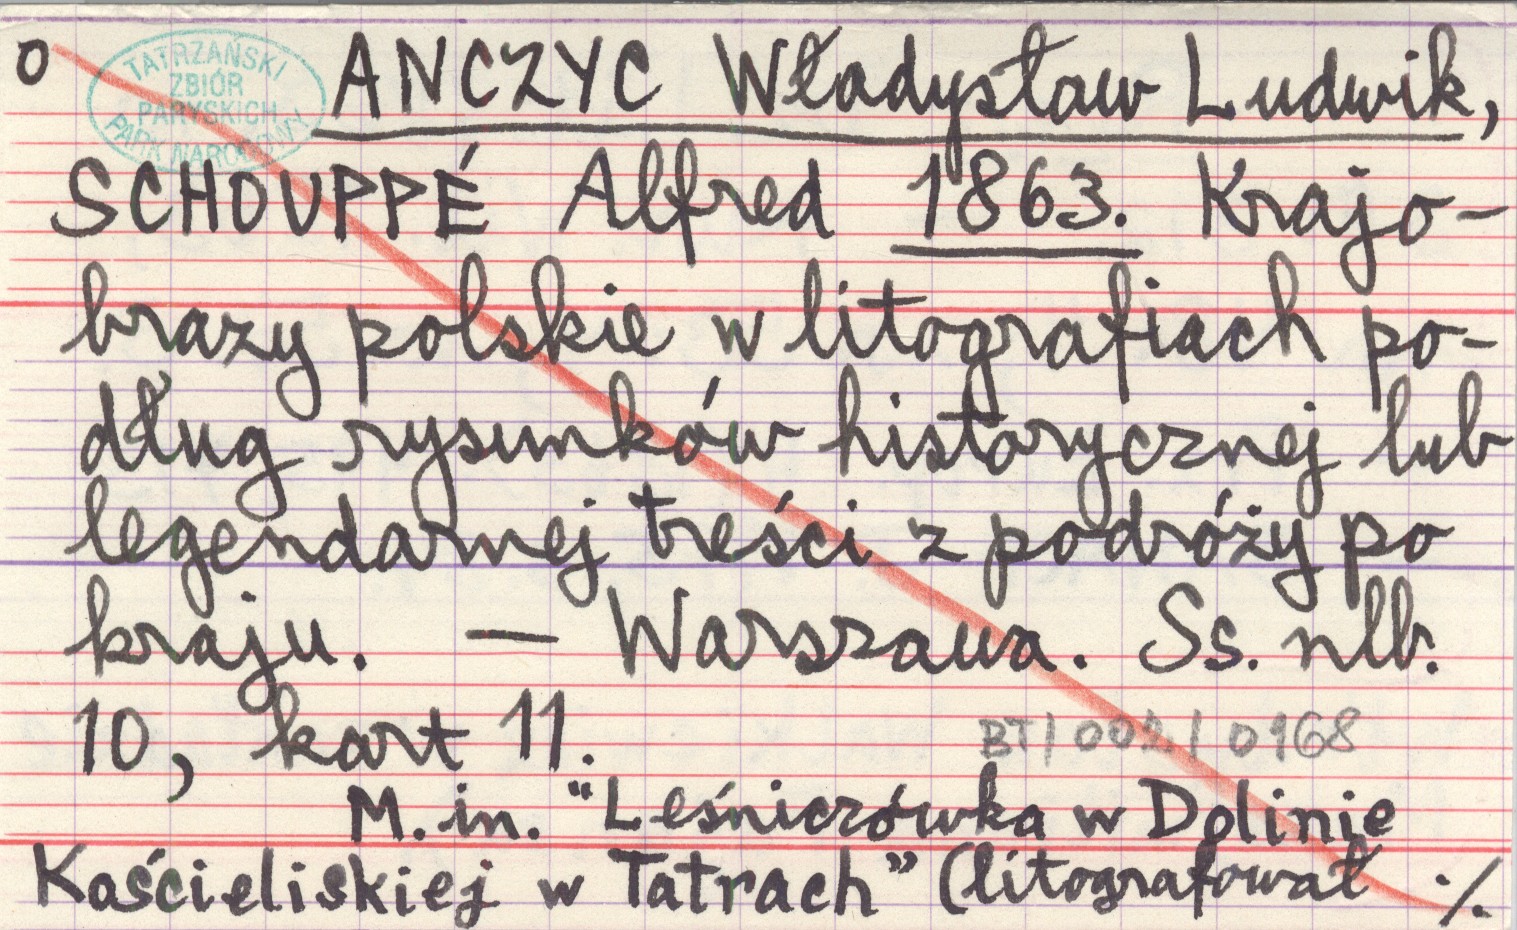 o
TATRZAŃSKI
ZBIÓR
PARYSKICH
PARK NARODOWY
ANCZYC Władysław Ludwik,
SCHOUPPÉ Alfred 1863. Krajo-
brazy polskie w litografiach po-
dług rysunków historycznej lub
legendarnej treści z podróży po
kraju. — Warszawa. Ss. nlb.
10, kart 11.
BT/002/0168
M. in. "Leśniczówka w Dolinie
Kościeliskiej w Tatrach" (litografował ./.